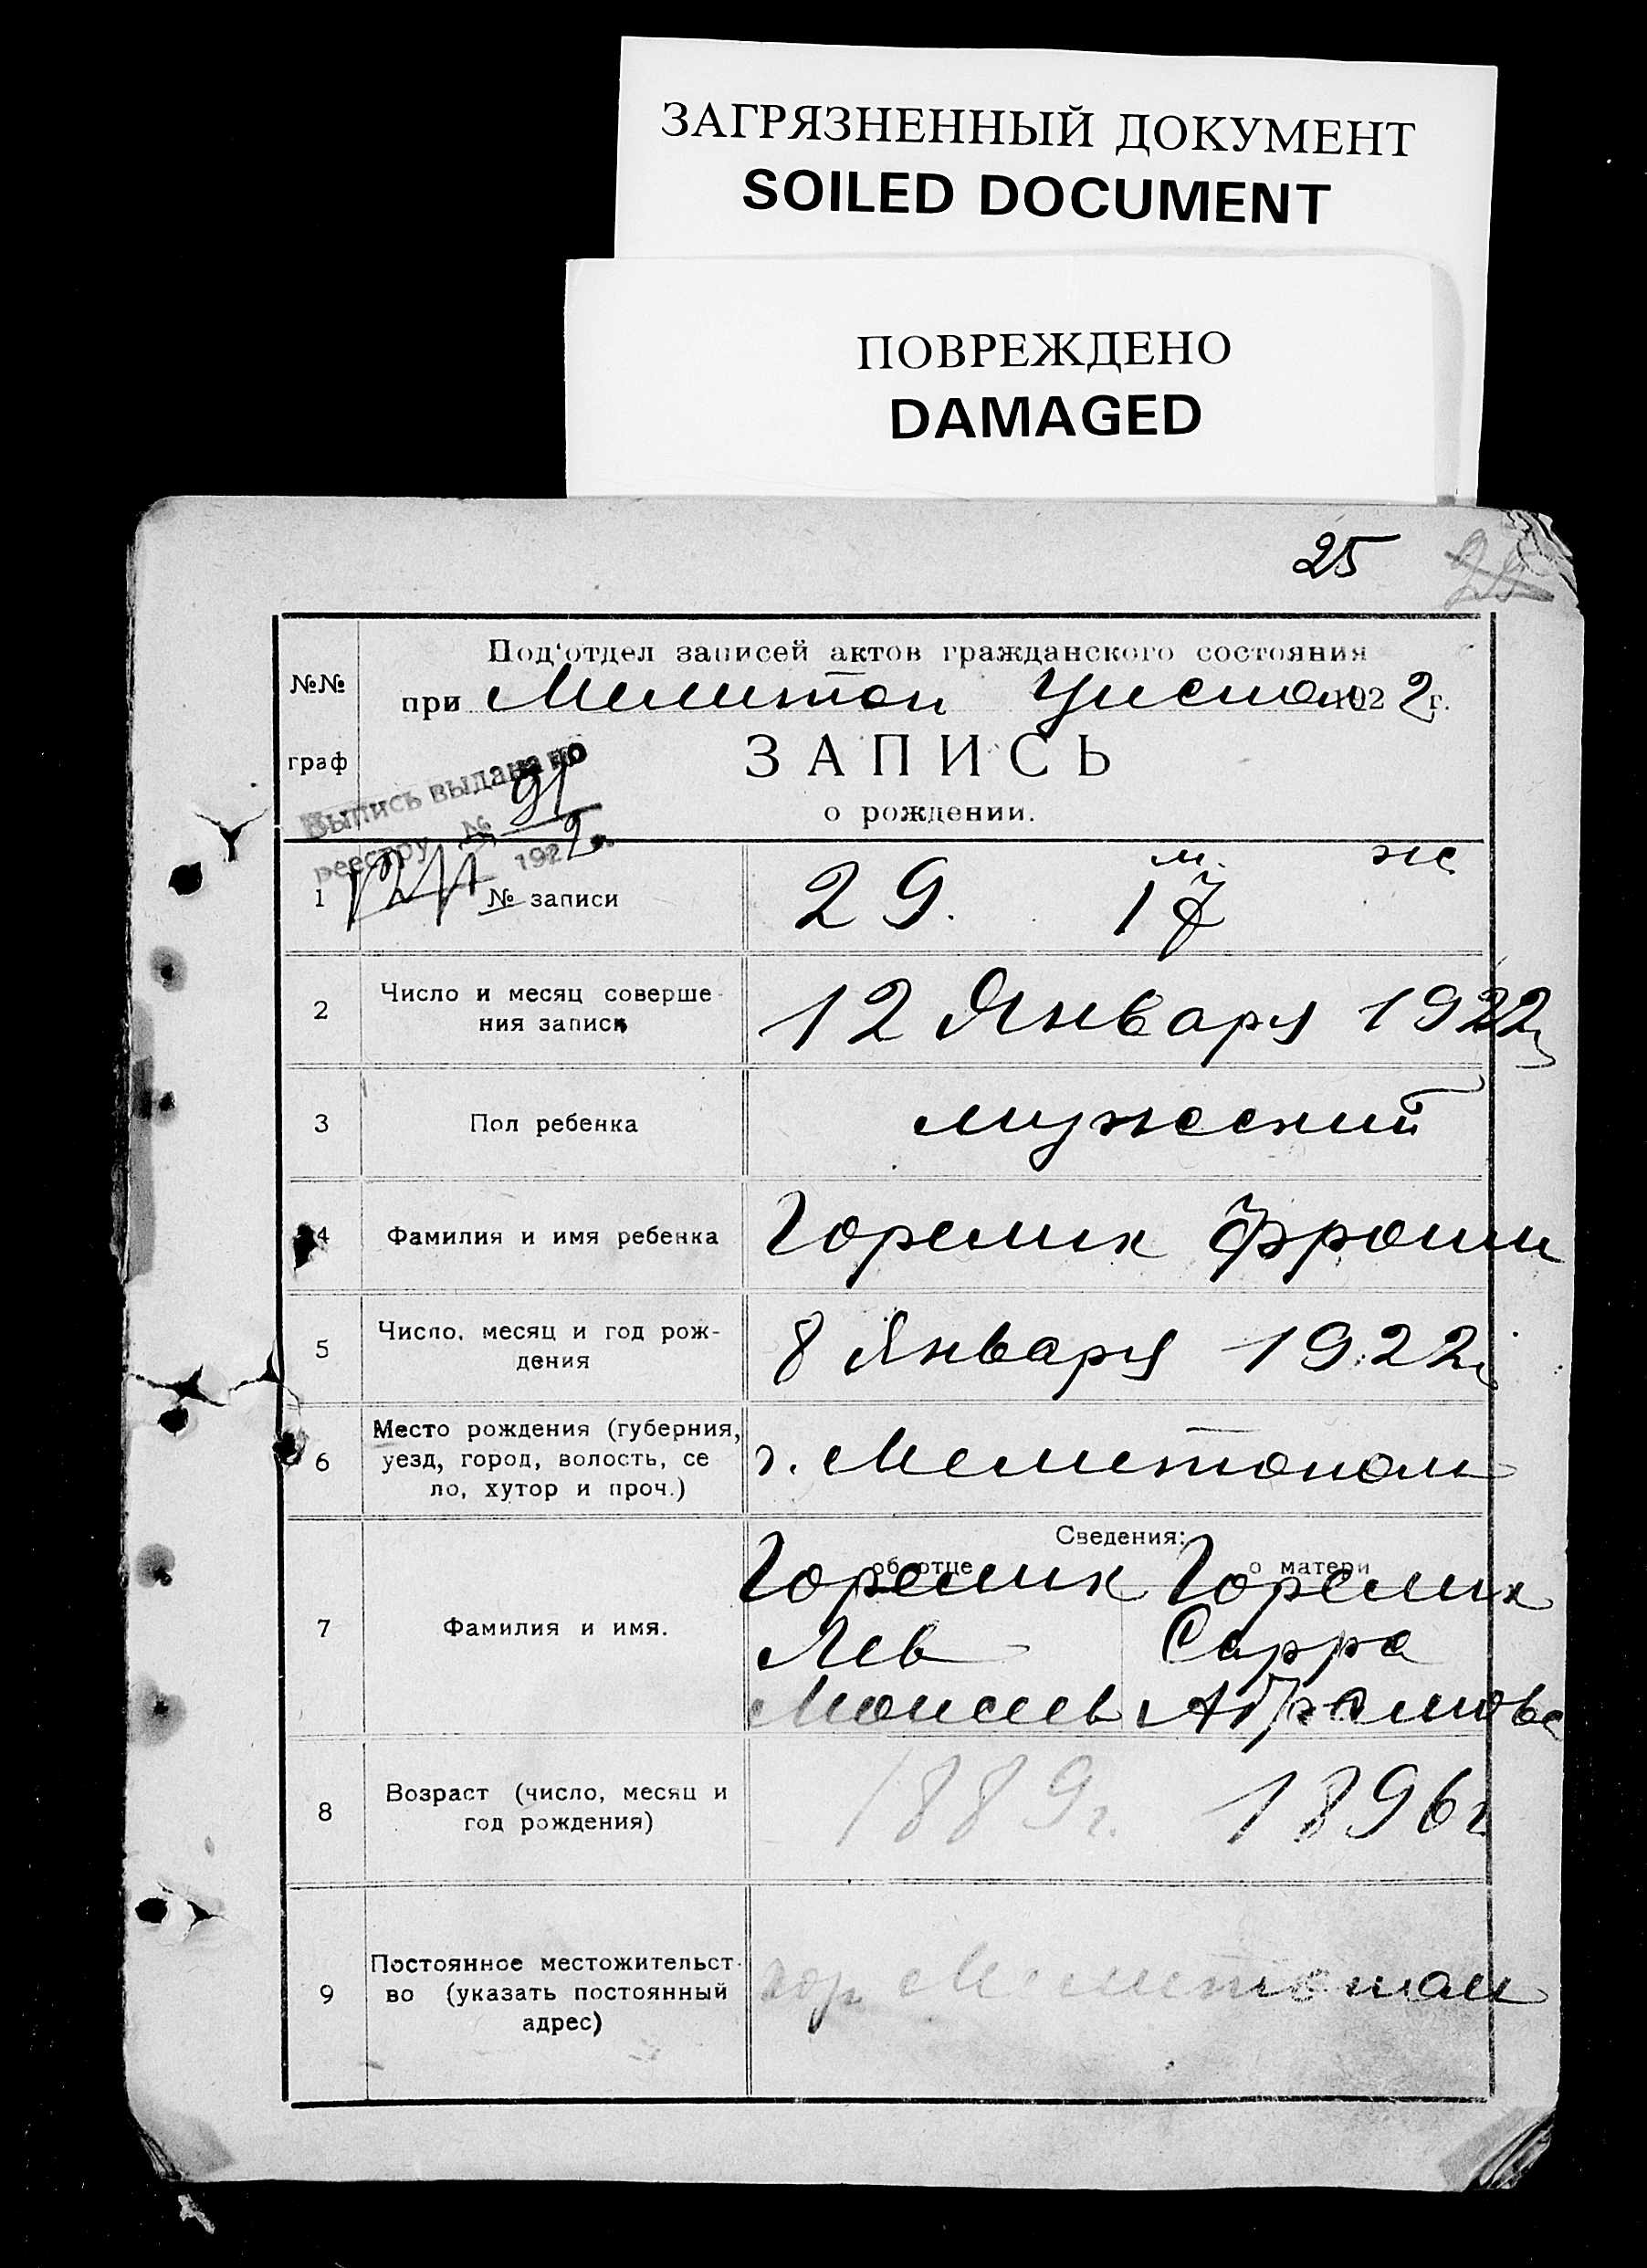 ЗАГРЯЗНЕННЫЙ ДОКУМЕНТ
SOILED DOCUMENT
ПОВРЕЖДЕНО
DAMAGED
25 25
№№ граф
Под‘отдел записей актов гражданского состояния
при Мелитоп 1922 г.
ЗАПИСЬ
о рождении.
Выпись выдана по
реестру № 91
1922 г.
м. ж
1 № записи 29. 17
2 Число и месяц соверше-
ния записи 12 Января 1922
3 Пол ребенка мужеский
4 Фамилия и имя ребенка Горелик Фроим
5 Число, месяц и год рож-
дения 8 Января 1922
6 Место рождения (губерния,
уезд, город, волость, се
ло, хутор и проч.) г. Мелитополь
Сведения:
об отце о матери
7 Фамилия и имя. Горелик Горелик
Лев Сарра
Моисеев Абрамовв
8 Возраст (число, месяц и
год рождения) 1889г. 1896г
9 Постоянное местожительст-
во (указать постоянный
адрес) гор. Мелитополь